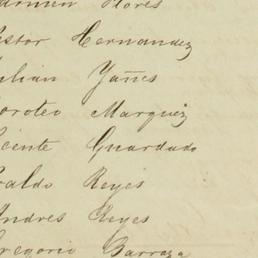 armen Flores
estor Hernandez
ulian Yañes
oroteo Marquez
icente Guardado
raldo Reyes
Andres Reyes
regorio Barraza